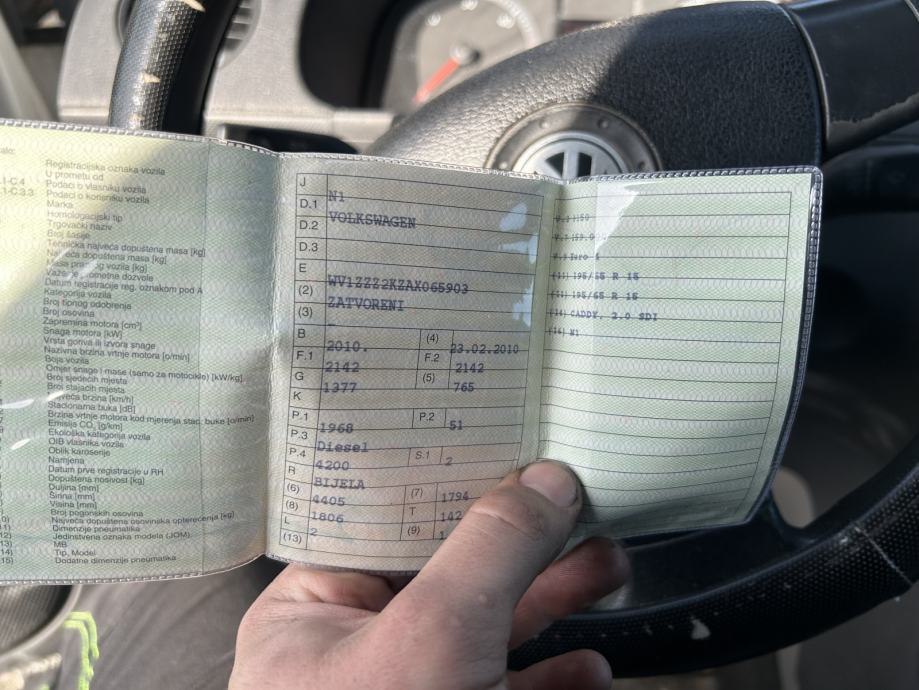 Registracijska oznaka vozila
U prometu od
Podaci o vlasniku vozila
Podaci o korisniku vozila
Marka
Homologacijski tip
Trgovački naziv
Broj šasije
Tehnička najveća dopuštena masa [kg]
Najveća dopuštena masa [kg]
Masa praznog vozila [kg]
Važenje prometne dozvole
Datum registracije reg. oznakom pod A
Kategorija vozila
Broj tipnog odobrenje
Broj osovina
Zapremina motora [cm³]
Snaga motora [kW]
Vrsta goriva ili izvora snage
Nazivna brzina vrtnje motora [o/min]
Boja vozila
Omjer snage i mase (samo za motocikle) [kW/kg]
Broj sjedećih mjesta
Broj stajaćih mjesta
Najveća brzina [km/h]
Stacionarna buka [dB]
Brzina vrtnje motora kod mjerenja stac. buke [o/min]
Emisija CO₂ [g/km]
Ekološka kategorija vozila
OIB vlasnika vozila
Oblik karoserije
Namjena
Datum prve registracije u RH
Dopuštena nosivost [kg]
Duljina [mm]
Širina [mm]
Visina [mm]
Broj pogonskih osovina
Najveća dopuštena osovinska opterećenja [kg]
Dimenzije pneumatika
Jedinstvena oznaka modela (JOM)
MB
Tip, Model
Dodatne dimenzije pneumatika
J N1
D.1 VOLKSWAGEN
D.2
D.3
E WV1ZZZ2KZAX065903
(2) ZATVORENI
(3) -
B 2010. (4) 23.02.2010
F.1 2142 F.2 2142
G 1377 (5) 765
K
P.1 1968 P.2 51
P.3 Diesel
P.4 4200 S.1 2
R BIJELA
(6) 4405 (7) 1794
(8) 1806 T 142
L 2 (9)
(13)
V.9 Euro
195/65 R 15
195/65 R 15
(14) CADDY, 2.0 SDI
N1